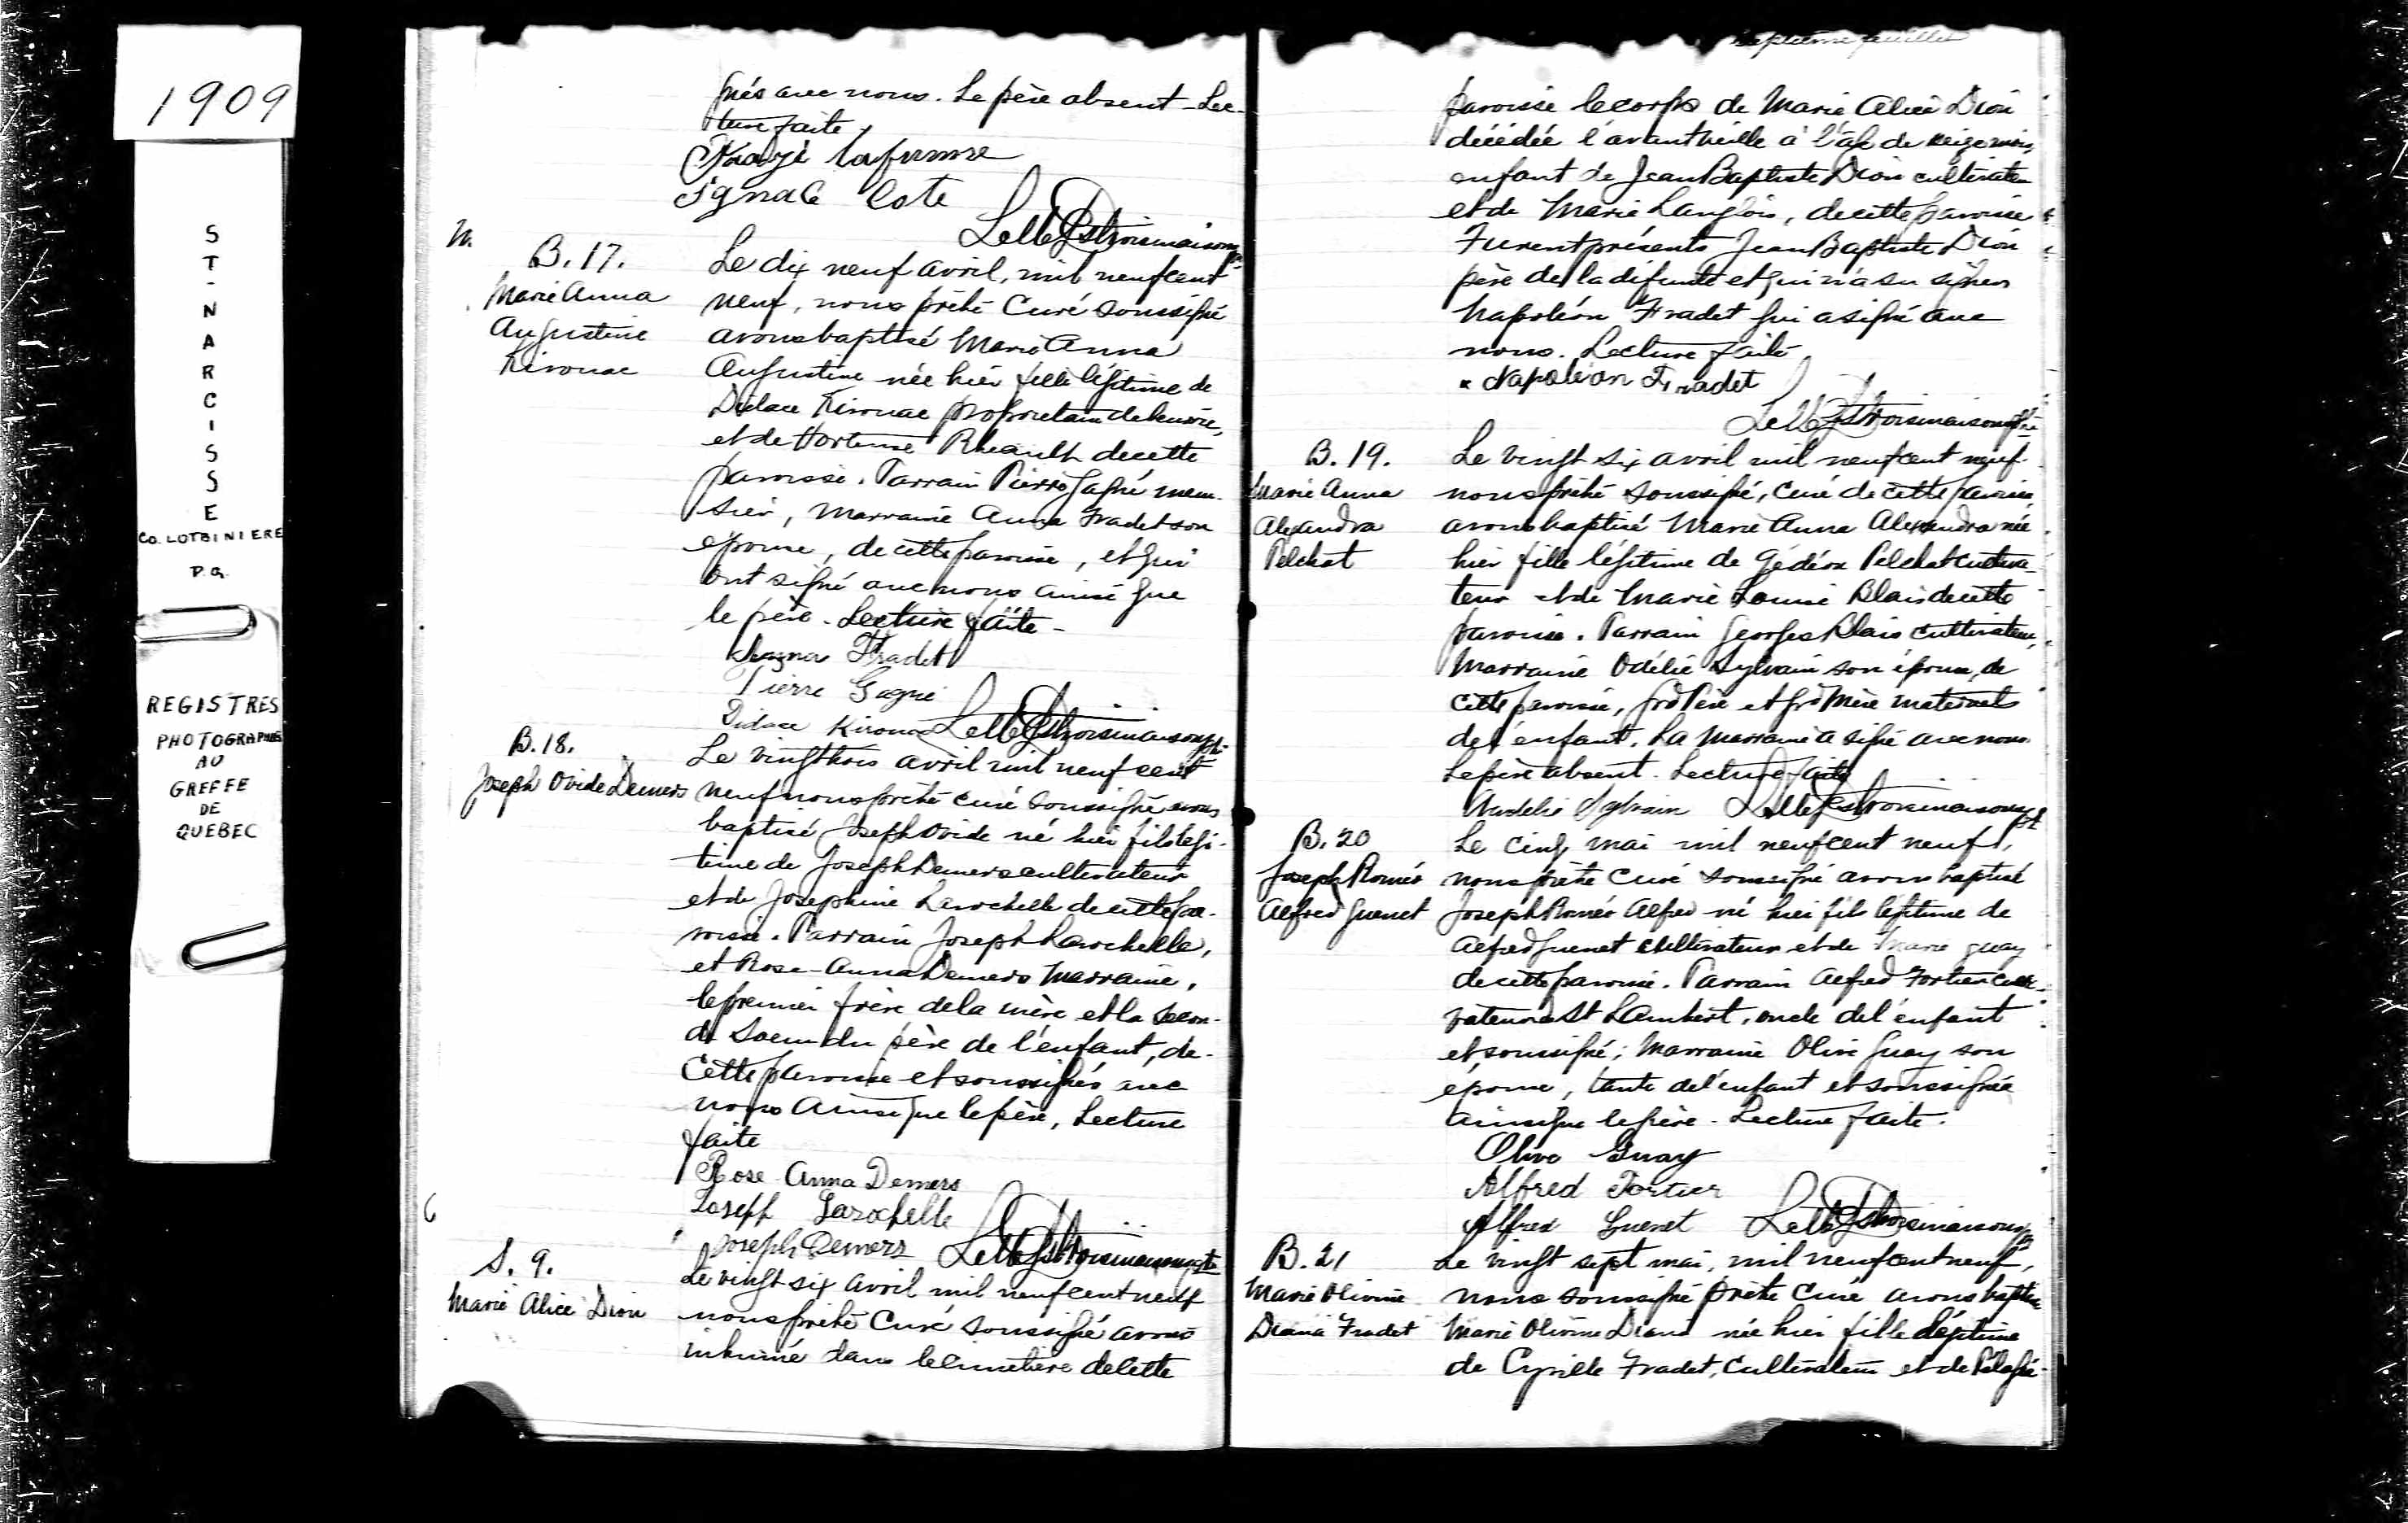 1909
ST-NARCISSE
CO. LOTBINIERE
P.Q.
REGISTRES
PHOTOGRAPHIÉS
AU
GREFFE
DE
QUEBEC
gnés avec nous. Le père absent - Lec-
ture faite
Ignace Cote
B. 17.
Marie Anna
Augustine
Kirouac
Le dix neuf avril, mil neuf cent
neuf, nous prêtre Curé soussigné
avons baptisé Marie Anna
Augustine née hier fille légitime de
Didace Kirouac propriétaire de beurrie,
et de Hortense Rheault de cette
paroisse. Parrain Pierre Gagné meu-
nier, Marraine Anna Fradet son
épouse, de cette paroisse, et qui
ont signé avec nous ainsi que
le père. Lecture faite -
Fradet
Pierre Gagné
Didace Kirouac
B. 18.
Joseph Ovide Demers
Le vingt trois avril mil neuf cent
neuf nous prêtre curé soussigné avons
baptisé Joseph Ovide né hier fils légi-
time de Joseph Demers cultivateur
et de Josephine Larochelle de cette pa-
roisse. Parrain Joseph Larochelle,
et Rose-Anna Demers Marraine,
le premier frère de la mère et la secon-
de Soeur du père de l'enfant, de
cette paroisse et soussignés avec
nous ainsi que le père, Lecture
faite
Rose Anna Demers
Joseph Larochelle
Joseph Demers
S. 9.
Marie Alice Dion
Le vingt six avril mil neuf cent neuf
nous prêtre Curé soussigné avons
inhumé dans le cimetière de cette
septième feuillet
paroisse le corps de Marie Alice Dion
décédée l'avant veille à l'age de seize mois,
enfant de Jean Baptiste Dion cultivateur
et de Marie Langlois, de cette paroisse
Furent présents Jean Baptiste Dion
père de la défunte et qui n'a su signer
Napoléon Fradet qui a signé avec
nous. Lecture faite
x Napoléon Fradet
B. 19.
Marie Anna
Alexandra
Pelchat
Le vingt six avril mil neuf cent neuf
nous prêtre soussigné, curé de cette paroisse,
avons baptisé Marie Anna Alexandra née
hier fille légitime de Gédéon Pelchat cultiva-
teur et de Marie Louise Blais de cette
paroisse. Parrain Georges Blais cultivateur,
Marraine Odélie Sylvain son épouse, de
cette paroisse, grd Père et grd Mère maternels
de l'enfant. La Marraine a signé avec nous
Le père absent. Lecture faite
Sylvain
B. 20
Joseph Roméo
Alfred Guenet
Le cinq mai mil neuf cent neuf,
nous prêtre Curé soussigné avons baptisé
Joseph Roméo Alfred né hier fils légitime de
Alfred Guenet cultivateur et de Marie Guay
de cette paroisse. Parrain Alfred Fortier culti-
vateur de St Lambert, oncle de l'enfant
et soussigné; Marraine Olive Guay son
épouse, tante de l'enfant et soussignée
ainsi que le père. Lecture faite.
Olive Guay
Alfred Fortier
Alfred Guenet
B. 21
Marie Olivine
Diana Fradet
Le vingt sept mai, mil neuf cent neuf,
nous soussigné prêtre Curé avons baptisé
Marie Olivine Diana née hier fille légitime
de Cyrille Fradet, cultivateur et de Pélagie